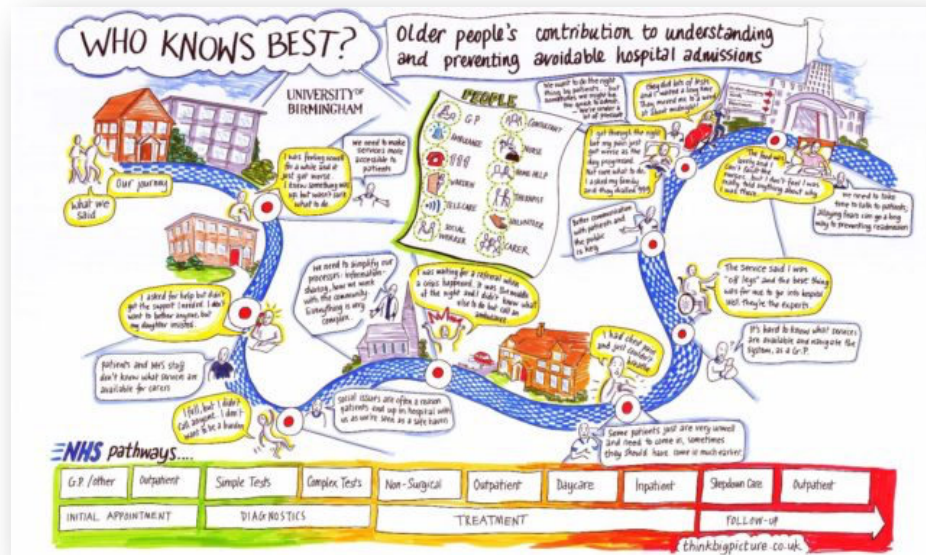 WHO KNOWS BEST?
Older people's contribution to understanding
and preventing avoidable hospital admissions
UNIVERSITY OF
BIRMINGHAM
Our journey
What we
said
I was feeling unwell
for a while and it
just got worse.
I knew something was
up, but wasn't sure
what to do.
we need to make
services more
accessible to
patients
PEOPLE
G.P
CONSULTANT
AMBULANCE
NURSE
999
HOME HELP
WARDEN
THERAPIST
TELECARE
VOLUNTEER
SOCIAL
WORKER
CARER
We want to do the right
thing by patients
sometimes we might be
too quick to admit
we're under a
lot of pressure
they did lots of tests
and I waited a long time
They moved me to a ward
at about midnight!
I got through the night
but my pain just
got worse as the
day progressed.
Not sure what to do,
I asked my family
and they dialled 999
The food was
lovely and I
can't fault the
nurses, but I don't feel I was
really told anything about why
I was there
we need to take
time to talk to patients,
Allaying fears can go a long
way to preventing readmission
Better communication
with patients and
the public
is key
The service said I was
"off legs" and the best thing
was for me to go into hospital
well they're the experts.
It's hard to know what services
are available and navigate the
system, as a G.P.
I asked for help but didn't
get the support I needed. I don't
want to bother anyone, but
my daughter insisted.
patients and NHS staff
don't know what services are
available for carers
I fell, but I didn't
call anyone. I don't
want to be a burden
we need to simplify our
processes - information-
sharing, how we work
with the community.
Everything is very
complex.
I was waiting for a referral when
a crisis happened, it was the middle
of the night and I didn't know what
else to do but call an
ambulance
social issues are often a reason
patients end up in hospital with
us as we're seen as a safe haven
I had chest pains
and just couldn't
breathe
Some patients just are very unwell
and need to come in, sometimes
they should have come in much earlier.
NHS pathways....
G.P./other
Outpatient
Simple Tests
Complex Tests
Non-Surgical
Outpatient
Daycare
Inpatient
Stepdown Care
Outpatient
INITIAL APPOINTMENT
DIAGNOSTICS
TREATMENT
FOLLOW-UP
thinkbigpicture.co.uk